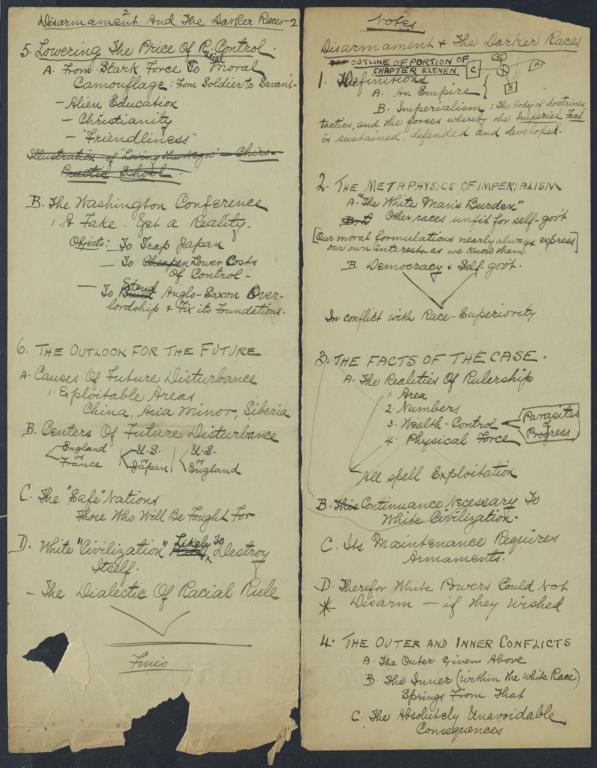 Notes
Disarmament + The Darker Races
OUTLINE OF PORTION OF
CHAPTER ELEVEN
C
A
B
1. Definitions
A. An Empire
B. Imperialism: The body of doctrines
tactics, and the forces whereby the Imperial Fact
is sustained defended and developed.
2. THE METAPHYSICS OF IMPERIALISM
A. "The White Man's Burden"
Other races unfit for self-gov't
[Our moral formulations nearly always express
our own interests as we know them]
B. Democracy + Self-gov't.
In conflict with Race-Superiority
3. THE FACTS OF THE CASE.
A. The Realities Of Rulership
1. Area
2. Numbers
3. Wealth-Control
4. Physical Force
Parasites
of
Progress
All spell Exploitation
B. This Continuance Necessary To
White Civilization.
C. Its Maintenance Requires
Armaments.
D. Therefor White Powers Could Not
* Disarm — if they wished
4. THE OUTER AND INNER CONFLICTS
A. The Outer Given Above
B. The Inner (within the white Race)
Springs From That
C. The Absolutely Unavoidable
Consequences
2
Disarmament And The Darker Races—2
5. Lowering The Price Of R. Control.
A. From Stark Force To Moral
Camouflage: From Soldier to Savant.
- Alien Education
- Christianity
- "Friendliness"
Illustration of "Loving the Negro" - Chiro-
Practic School.
B. The Washington Conference
1. A Fake. Yet a Reality.
Objects: To Trap Japan
- To Cheapen Lower Costs
Of Control -
- To Build Stand Anglo-Saxon Over-
lordship + Fix its Foundations.
6. THE OUTLOOK FOR THE FUTURE
A. Causes Of Future Disturbance
1. Exploitable Areas
China, Asia Minor, Siberia
B. Centers Of Future Disturbance
England or France
U.S. or Japan
U.S. or England
C. The "Safe" Nations
Those Who Will Be Fought For
D. White "Civilization" Likely To Destroy
Itself.
- The Dialectic Of Racial Rule
Finis